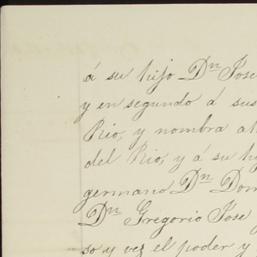 á su hijo Dn Jose
y en segundo á sus
Rio, y nombra al
del Rio, y á su h
germano, Dn Dom
Dn Gregorio Jose
so y vez el poder y